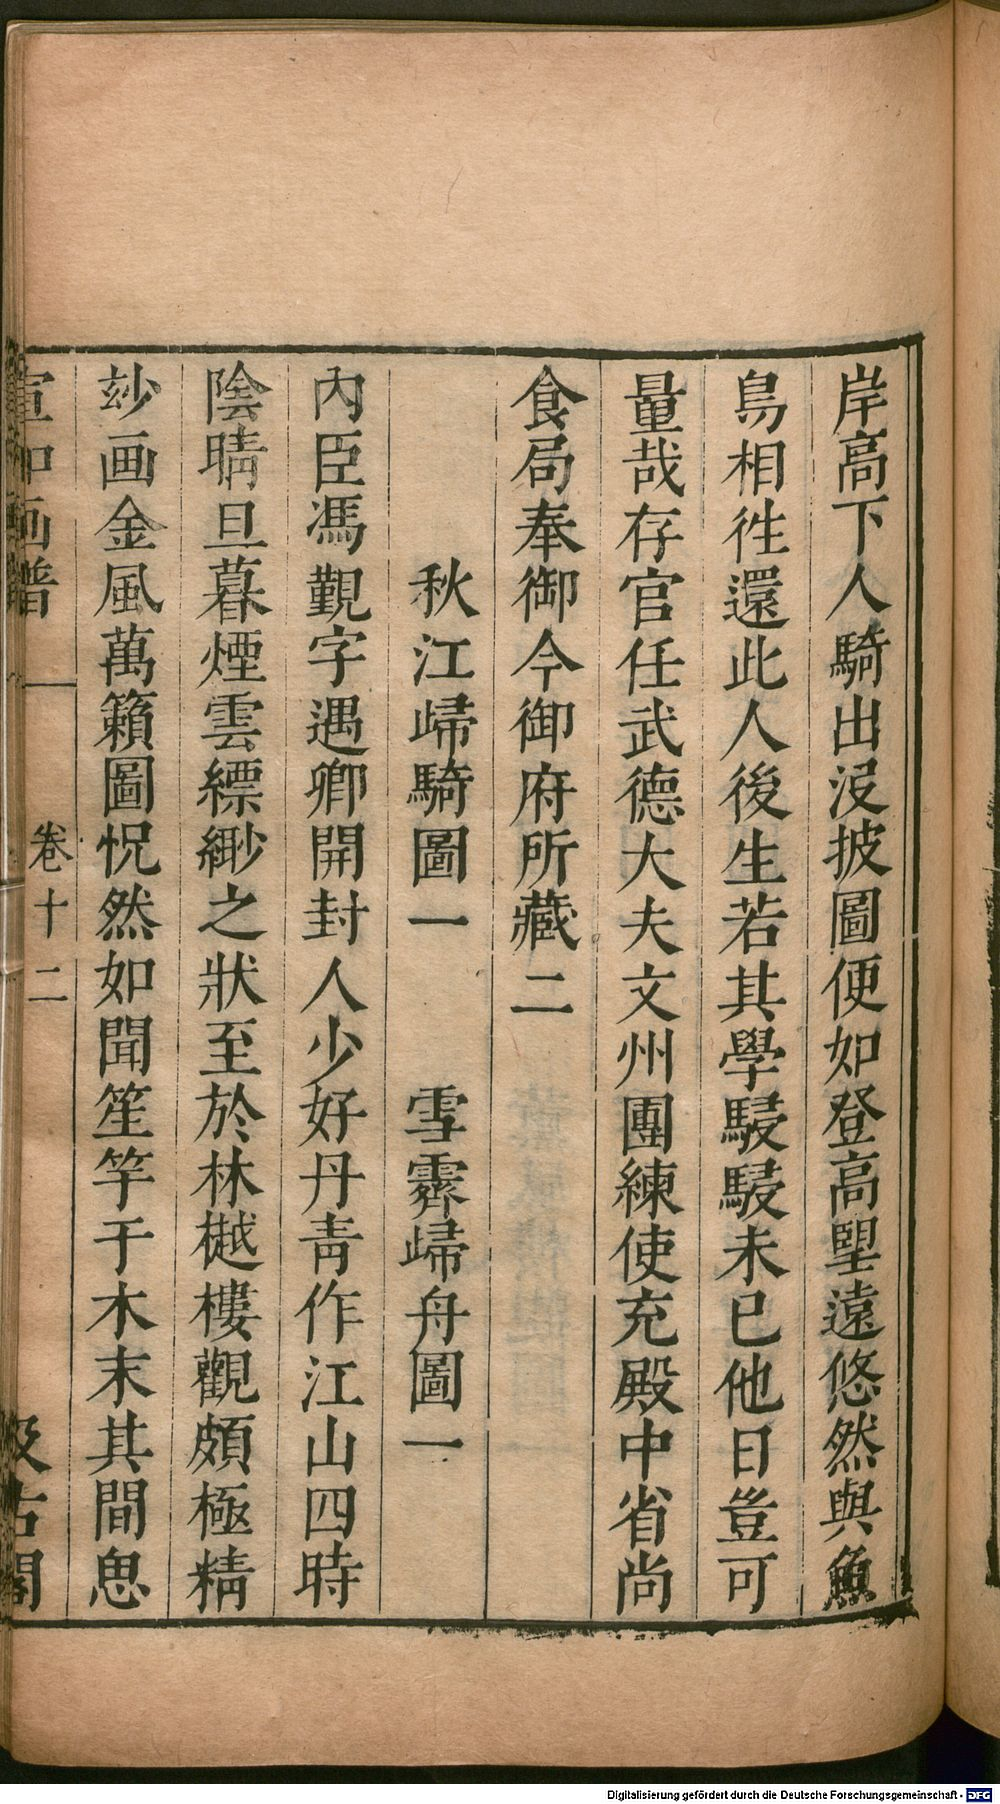 岸高下人騎出沒披圖便如登高望遠悠然與魚
鳥相徃還此人後生若其學駸駸未已他日豈可
量哉存官任武德大夫文州團練使充殿中省尚
食局奉御今御府所藏二
秋江歸騎圖一　雪霽歸舟圖一
內臣馮覲字遇卿開封人少好丹青作江山四時
陰晴旦暮煙雲縹緲之狀至於林樾樓觀頗極精
玅画金風萬籟圖怳然如聞笙竽于木末其間思
宣和画譜　卷十二　汲古閣
Digitalisierung gefördert durch die Deutsche Forschungsgemeinschaft - DFG